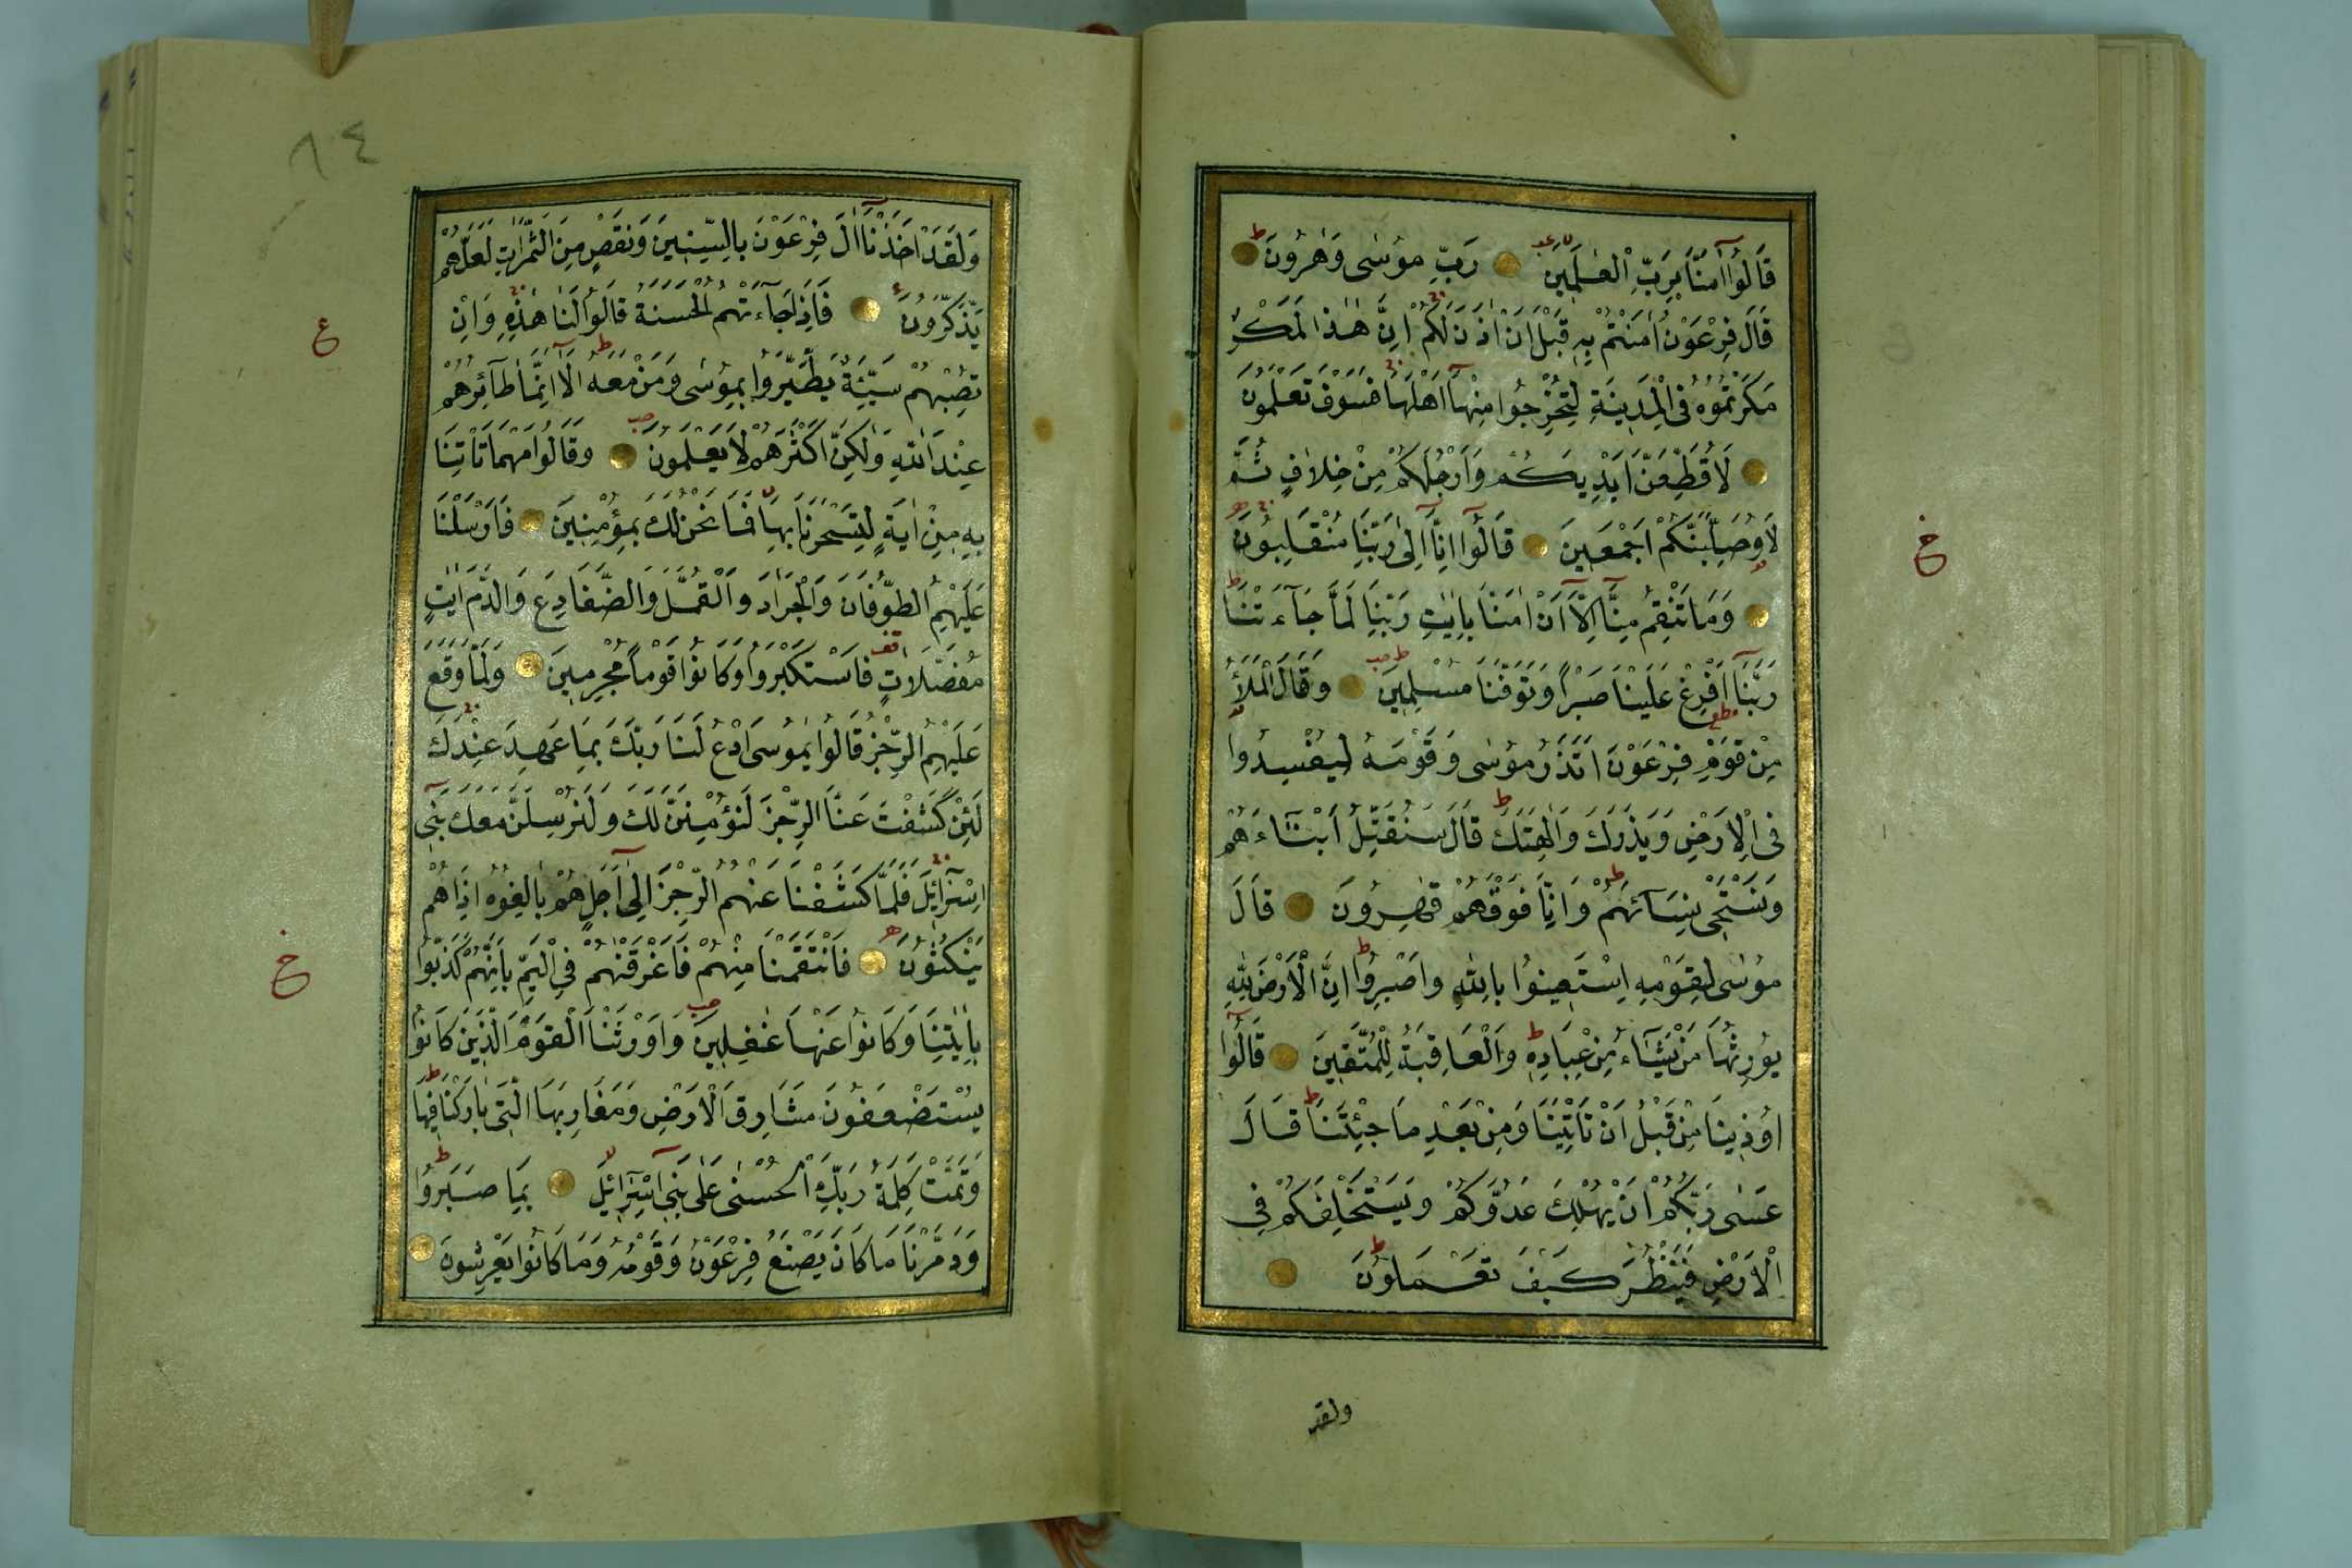 قَالُوا اٰمَنَّا بِرَبِّ الْعٰلَمِينَ رَبِّ مُوسٰى وَهٰرُونَ
قَالَ فِرْعَوْنُ اٰمَنْتُمْ بِهِ قَبْلَ اَنْ اٰذَنَ لَكُمْ اِنَّ هٰذَا لَمَكْرٌ
مَكَرْتُمُوهُ فِى الْمَدِينَةِ لِتُخْرِجُوا مِنْهَا اَهْلَهَا فَسَوْفَ تَعْلَمُونَ
لَاُقَطِّعَنَّ اَيْدِيَكُمْ وَاَرْجُلَكُمْ مِنْ خِلَافٍ ثُمَّ
لَاُوصَلِّبَنَّكُمْ اَجْمَعِينَ قَالُوا اِنَّا اِلٰى رَبِّنَا مُنْقَلِبُونَ
وَمَا تَنْقِمُ مِنَّا اِلَّا اَنْ اٰمَنَّا بِاٰيٰتِ رَبِّنَا لَمَّا جَآءَتْنَا
رَبَّنَا اَفْرِغْ عَلَيْنَا صَبْرًا وَتَوَفَّنَا مُسْلِمِينَ وَقَالَ الْمَلَأُ
مِنْ قَوْمِ فِرْعَوْنَ اَتَذَرُ مُوسٰى وَقَوْمَهُ لِيُفْسِدُوا
فِى الْاَرْضِ وَيَذَرَكَ وَاٰلِهَتَكَ قَالَ سَنُقَتِّلُ اَبْنَآءَهُمْ
وَنَسْتَحْيِى نِسَآئَهُمْ وَاِنَّا فَوْقَهُمْ قٰهِرُونَ قَالَ
مُوسٰى لِقَوْمِهِ اسْتَعِينُوا بِاللّٰهِ وَاصْبِرُوا اِنَّ الْاَرْضَ لِلّٰهِ
يُورِثُهَا مَنْ يَشَآءُ مِنْ عِبَادِهِ وَالْعَاقِبَةُ لِلْمُتَّقِينَ قَالُوا
اُوذِينَا مِنْ قَبْلِ اَنْ تَاْتِيَنَا وَمِنْ بَعْدِ مَا جِئْتَنَا قَالَ
عَسٰى رَبُّكُمْ اَنْ يُهْلِكَ عَدُوَّكُمْ وَيَسْتَخْلِفَكُمْ فِى
الْاَرْضِ فَيَنْظُرَ كَيْفَ تَعْمَلُونَ
ولقد
خ
٨٤
وَلَقَدْ اَخَذْنَا اٰلَ فِرْعَوْنَ بِالسِّنِينَ وَنَقْصٍ مِنَ الثَّمَرَاتِ لَعَلَّهُمْ
يَذَّكَّرُونَ فَاِذَا جَآءَتْهُمُ الْحَسَنَةُ قَالُوا لَنَا هٰذِهِ وَاِنْ
تُصِبْهُمْ سَيِّئَةٌ يَطَّيَّرُوا بِمُوسٰى وَمَنْ مَعَهُ اَلَا اِنَّمَا طَآئِرُهُمْ
عِنْدَ اللّٰهِ وَلٰكِنَّ اَكْثَرَهُمْ لَا يَعْلَمُونَ وَقَالُوا مَهْمَا تَاْتِنَا
بِهِ مِنْ اٰيَةٍ لِتَسْحَرَنَا بِهَا فَمَا نَحْنُ لَكَ بِمُؤْمِنِينَ فَاَرْسَلْنَا
عَلَيْهِمُ الطُّوفَانَ وَالْجَرَادَ وَالْقُمَّلَ وَالضَّفَادِعَ وَالدَّمَ اٰيٰتٍ
مُفَصَّلَاتٍ فَاسْتَكْبَرُوا وَكَانُوا قَوْمًا مُجْرِمِينَ وَلَمَّا وَقَعَ
عَلَيْهِمُ الرِّجْزُ قَالُوا يٰمُوسَى ادْعُ لَنَا رَبَّكَ بِمَا عَهِدَ عِنْدَكَ
لَئِنْ كَشَفْتَ عَنَّا الرِّجْزَ لَنُؤْمِنَنَّ لَكَ وَلَنُرْسِلَنَّ مَعَكَ بَنِى
اِسْرَآئِيلَ فَلَمَّا كَشَفْنَا عَنْهُمُ الرِّجْزَ اِلٰى اَجَلٍ هُمْ بَالِغُوهُ اِذَا هُمْ
يَنْكُثُونَ فَانْتَقَمْنَا مِنْهُمْ فَاَغْرَقْنٰهُمْ فِى الْيَمِّ بِاَنَّهُمْ كَذَّبُوا
بِاٰيٰتِنَا وَكَانُوا عَنْهَا غٰفِلِينَ وَاَوْرَثْنَا الْقَوْمَ الَّذِينَ كَانُوا
يُسْتَضْعَفُونَ مَشَارِقَ الْاَرْضِ وَمَغَارِبَهَا الَّتِى بَارَكْنَا فِيهَا
وَتَمَّتْ كَلِمَةُ رَبِّكَ الْحُسْنٰى عَلٰى بَنِى اِسْرَآئِيلَ بِمَا صَبَرُوا
وَدَمَّرْنَا مَا كَانَ يَصْنَعُ فِرْعَوْنُ وَقَوْمُهُ وَمَا كَانُوا يَعْرِشُونَ
ع
خ